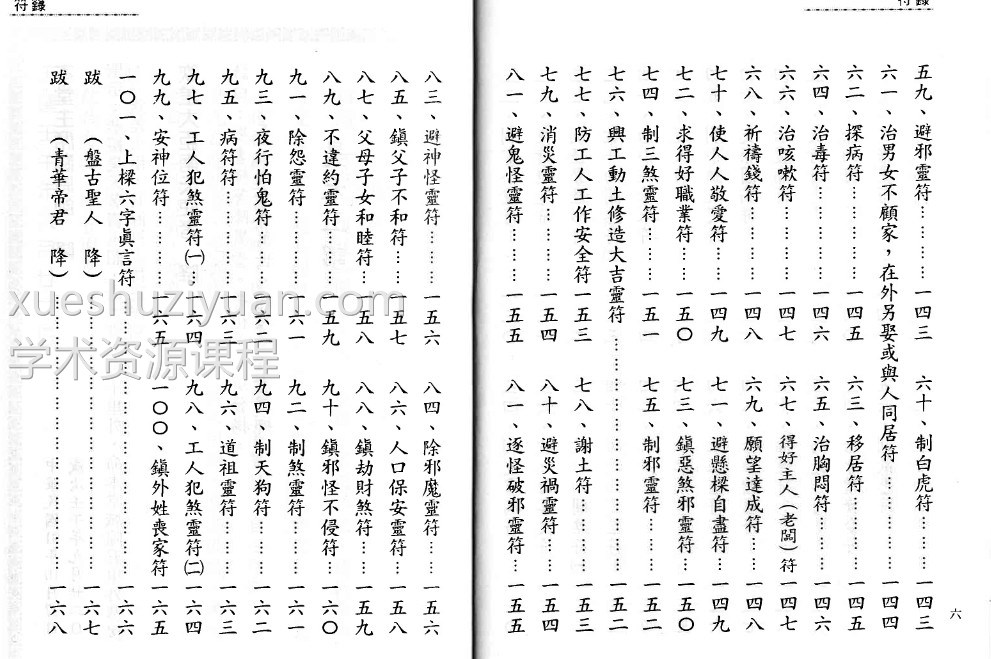 符錄
五九、避邪靈符……一四三
六十、制白虎符……一四三
六一、治男女不顧家，在外另娶或與人同居符……一四四
六二、探病符……一四五
六三、移居符……一四五
六四、治毒符……一四六
六五、治胸悶符……一四六
六六、治咳嗽符……一四七
六七、得好主人（老闆）符……一四七
六八、祈禱錢符……一四八
六九、願望達成符……一四八
七十、使人人敬愛符……一四九
七一、避懸樑自盡符……一四九
七二、求得好職業符……一五〇
七三、鎮惡煞邪靈符……一五〇
七四、制三煞靈符……一五一
七五、制邪靈符……一五一
七六、興工動土修造大吉靈符……一五二
七七、防工人工作安全符……一五三
七八、謝土符……一五三
七九、消災靈符……一五四
八十、避災禍靈符……一五四
八一、避鬼怪靈符……一五五
八一、逐怪破邪靈符……一五五
六
符錄
八三、避神怪靈符……一五六
八四、除邪魔靈符……一五六
八五、鎮父子不和符……一五七
八六、人口保安靈符……一五八
八七、父母子女和睦符……一五八
八八、鎮劫財煞符……一五九
八九、不違約靈符……一五九
九十、鎮邪怪不侵符……一六〇
九一、除怨靈符……一六一
九二、制煞靈符……一六一
九三、夜行怕鬼符……一六二
九四、制天狗符……一六二
九五、病符符……一六三
九六、道祖靈符……一六三
九七、工人犯煞靈符㈠……一六四
九八、工人犯煞靈符㈡……一六四
九九、安神位符……一六五
一〇〇、鎮外姓喪家符……一六五
一〇一、上樑六字眞言符……一六六
跋（盤古聖人 降）……一六七
跋（青華帝君 降）……一六八
xueshuziyuan.com
学术资源课程